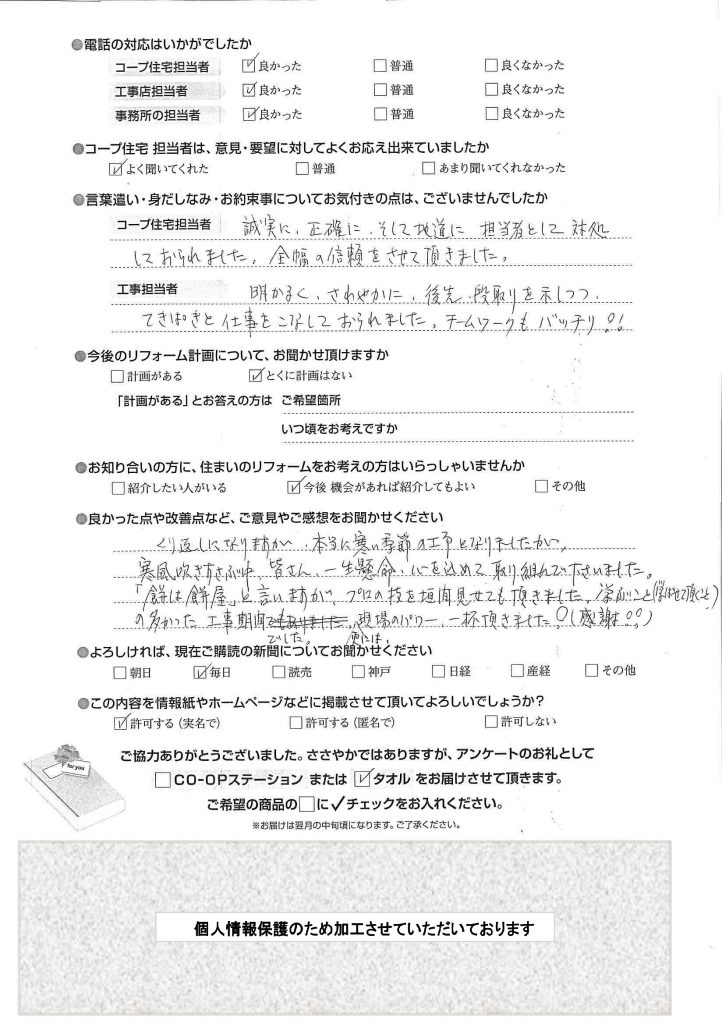 ●電話の対応はいかがでしたか
コープ住宅担当者 ☑良かった □普通 □良くなかった
工事店担当者 ☑良かった □普通 □良くなかった
事務所の担当者 ☑良かった □普通 □良くなかった
●コープ住宅 担当者は、意見・要望に対してよくお応え出来ていましたか
☑よく聞いてくれた □普通 □あまり聞いてくれなかった
●言葉遣い・身だしなみ・お約束事についてお気付きの点は、ございませんでしたか
コープ住宅担当者 誠実に、正確に、そして地道に 担当者として 対処
しておられました。全幅の信頼をさせて頂きました。
工事担当者 明かるく、さわやかに、後先、段取りを示しつつ、
てきぱきと仕事をこなしておられました。チームワークもバッチリ!!
●今後のリフォーム計画について、お聞かせ頂けますか
□計画がある ☑とくに計画はない
「計画がある」とお答えの方は ご希望箇所
いつ頃をお考えですか
●お知り合いの方に、住まいのリフォームをお考えの方はいらっしゃいませんか
□紹介したい人がいる ☑今後 機会があれば紹介してもよい □その他
●良かった点や改善点など、ご意見やご感想をお聞かせください
くり返しになりますが、本当に寒い季節の工事となりましたが、
寒風吹きすさぶ中、皆さん、一生懸命、心を込めて取り組んで下さいました。
「餅は餅屋」と言いますが、プロの技を垣間見せても頂きました。学ぶこと(学ばせて頂くこと)
の多かった 工事期間でもありました。現場のパワー、一杯頂きました!(感謝!!)
でした。 更には、
●よろしければ、現在ご購読の新聞についてお聞かせください
□朝日 ☑毎日 □読売 □神戸 □日経 □産経 □その他
●この内容を情報紙やホームページなどに掲載させて頂いてよろしいでしょうか?
☑許可する(実名で) □許可する(匿名で) □許可しない
for you
ご協力ありがとうございました。ささやかではありますが、アンケートのお礼として
□CO-OPステーション または ☑タオル をお届けさせて頂きます。
ご希望の商品の□に✓チェックをお入れください。
※お届けは翌月の中旬頃になります。ご了承ください。
個人情報保護のため加工させていただいております